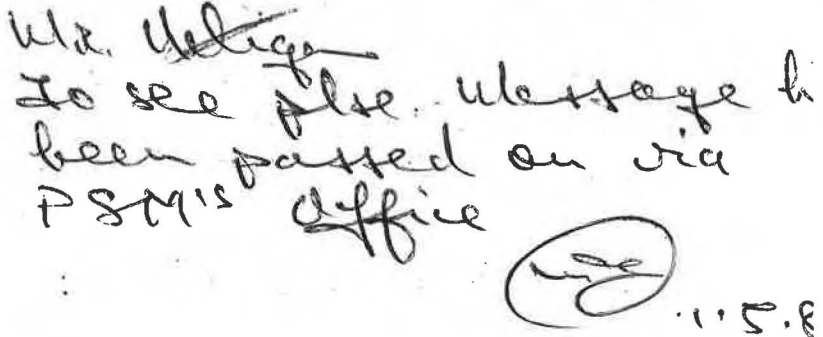 Mr.
To see plse. Message h
been passed on via
PSM's Office
1.5.8